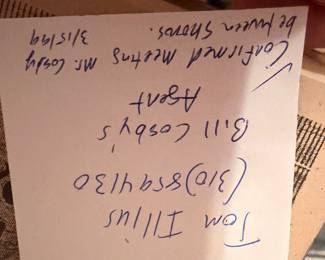 Tom Illius
(310)8594130
Bill Cosby's
Agent
✓ Confirmed meeting Mr. Cosby 3/15/99
between shows.